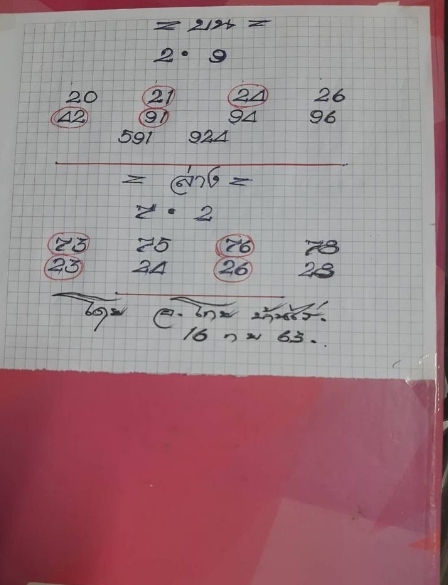 = บน =
2 • 9
20 21 24 26
42 91 94 96
591 924
= ล่าง =
7 • 2
73 75 76 78
23 24 26 28
โดย อ. ไทย บ้านไร่.
16 กพ 63.